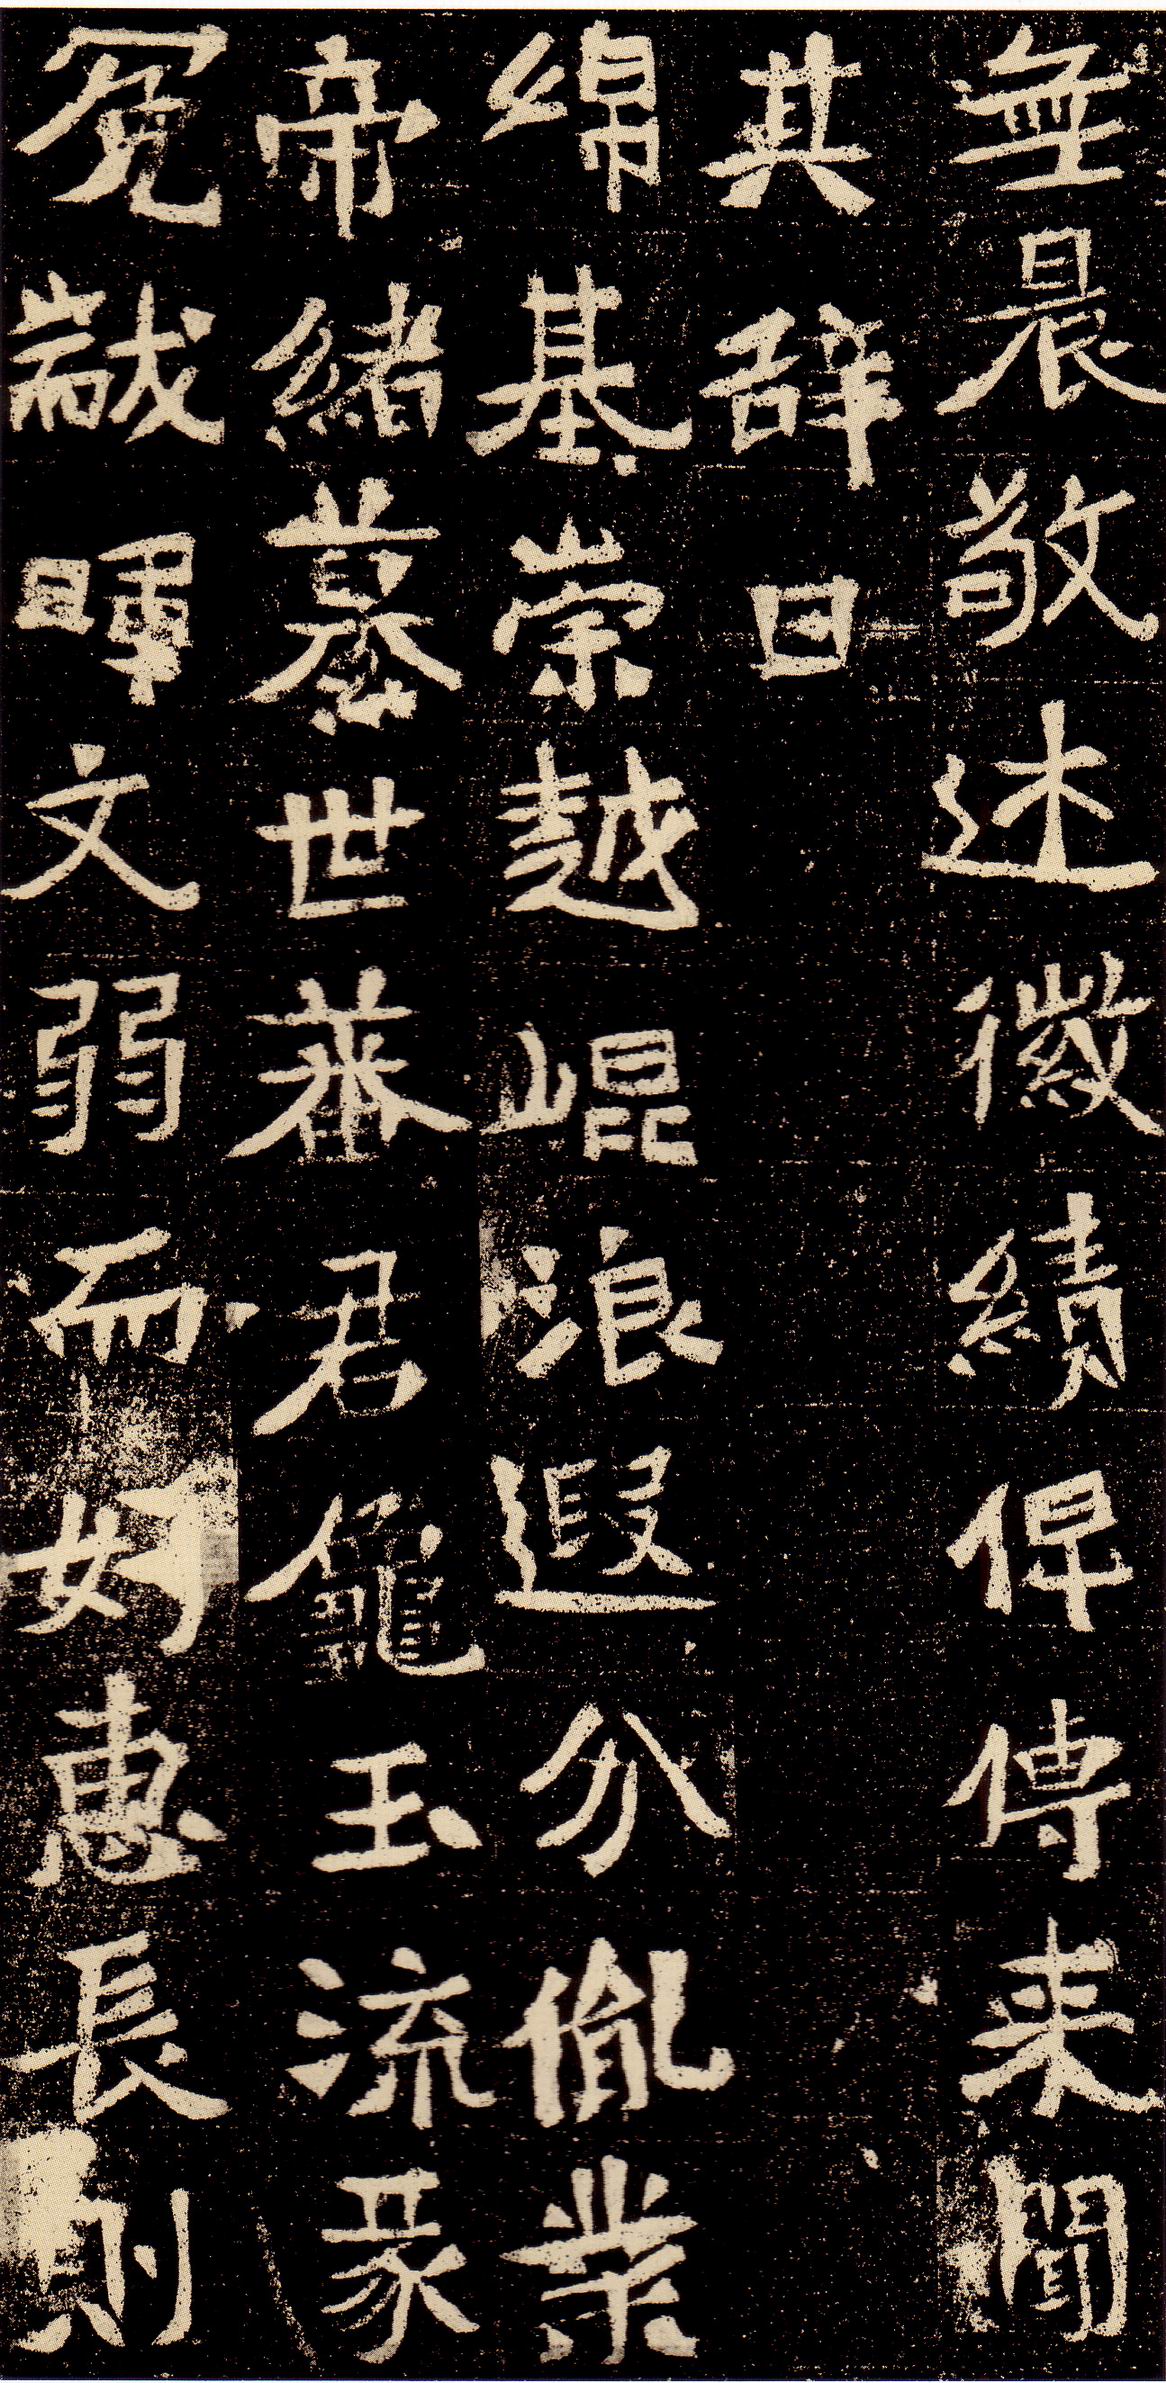 無晨敬述徽績俾傳来聞
其辭曰
綿基崇越崐浪遐分胤業
帝緒纂世蕃君龜玉流彖
冕黻暉文弱而好惠長則